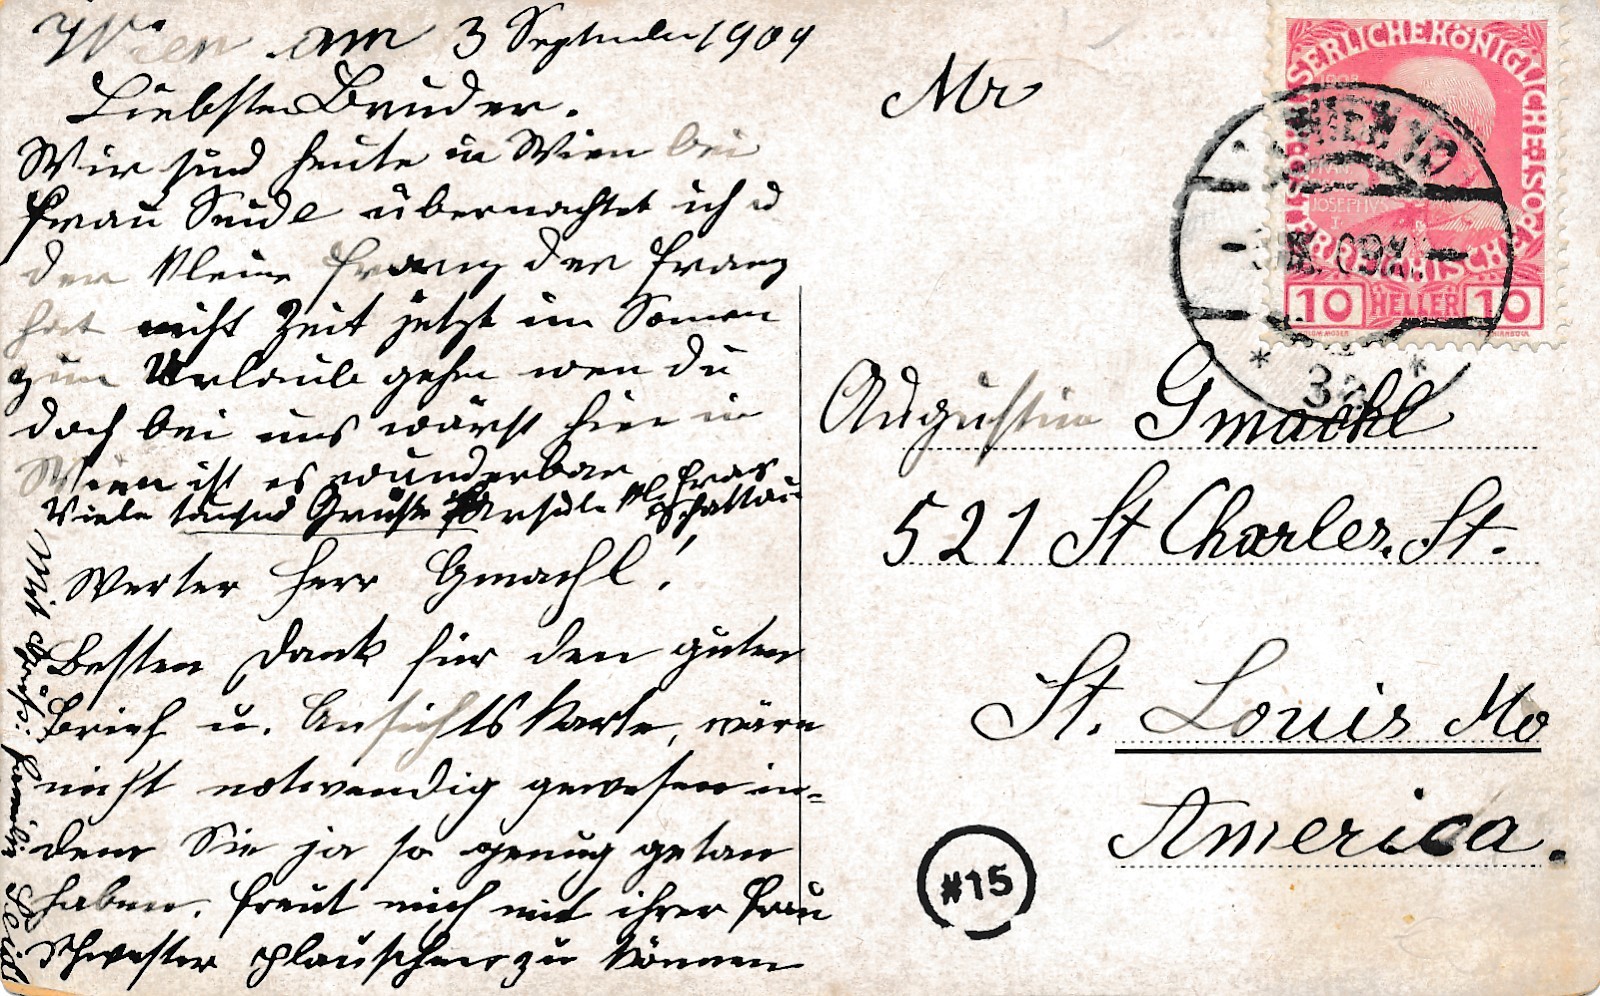 Wien am 3 September 1909
Liebster Bruder.
Wir sind heute in Wien bei
Frau Seidl übernachtet ich u
der kleine Franz der Franz
hat nicht Zeit jetzt im Somer
zum Urlaub gehn wen du
doch bei uns wärst hier in
Wien ist es wunderbar
Viele tausend Grüße Ursula kl. Franz
Schattau
Werter Herr Gmachl!
Besten Dank für den guten
Brief u. Ansichtskarte, wäre
nicht notwendig gewesen in-
dem Sie ja so genug getan
haben. Freut mich mit ihrer Frau
Schwester plauschen zu können
Mit Grüße: Familie Seidl
Mr
Augustin Gmachl
521 St Charles. St.
St. Louis Mo
America.
#15
SERLICHEKÖNIGLICHE ÖSTERREICHISCHE POS
1908
FRAN
JOSEPHVS
I
10 HELLER 10
WIEN 10
IX. 09
* 3a *